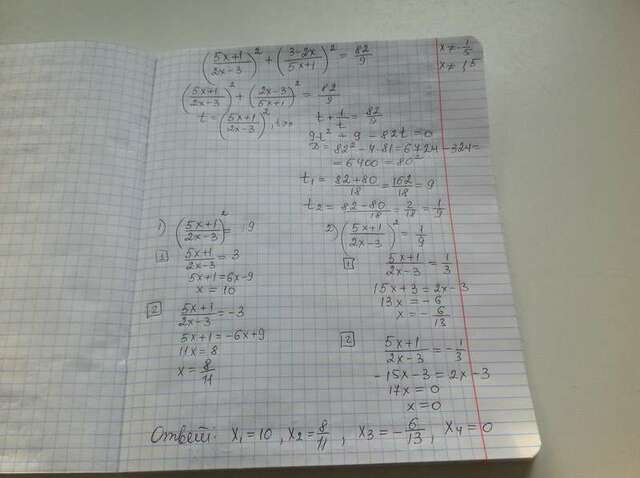 (5x+1/2x-3)² + (3-2x/5x+1)² = 82/9
x ≠ -1/5
x ≠ 1,5
(5x+1/2x-3)² + (2x-3/5x+1)² = 82/9
t = (5x+1/2x-3)², t>0
t + 1/t = 82/9
9t² + 9 - 82t = 0
D = 82² - 4·81 = 6724 - 324 =
= 6400 = 80²
t₁ = 82+80/18 = 162/18 = 9
t₂ = 82-80/18 = 2/18 = 1/9
1) (5x+1/2x-3)² = 9
1 5x+1/2x-3 = 3
5x+1 = 6x-9
x = 10
2 5x+1/2x-3 = -3
5x+1 = -6x+9
11x = 8
x = 8/11
2) (5x+1/2x-3)² = 1/9
1 5x+1/2x-3 = 1/3
15x+3 = 2x-3
13x = -6
x = -6/13
2 5x+1/2x-3 = -1/3
-15x-3 = 2x-3
17x = 0
x = 0
Ответ: x₁ = 10, x₂ = 8/11, x₃ = -6/13, x₄ = 0